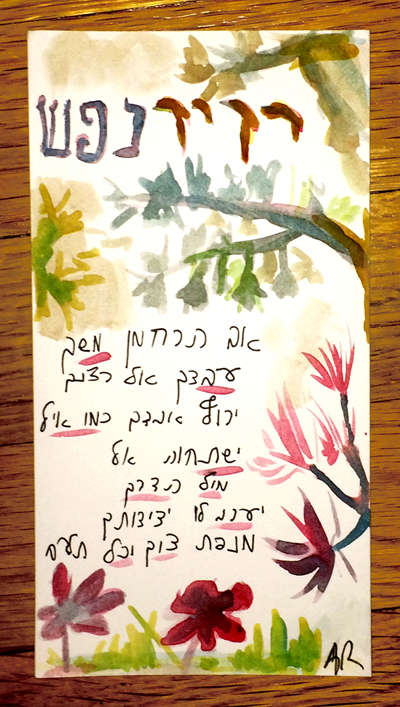 ידיד נפש
אב הרחמן משך
עבדך אל רצונך
ירוץ עבדך כמו איל
ישתחוה אל
מול הדרך
יערב לו ידידותך
מנפת צוף וכל טעם
AR